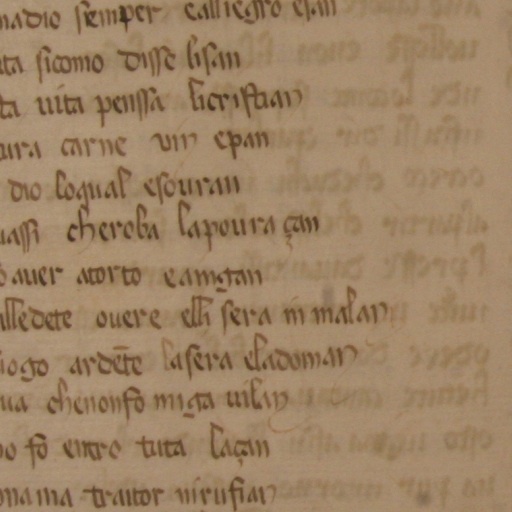 madio semper ealliegro esan
ata sicomo disse lisan
sta uita penssa licristian
pura carne uin epan
dio loqual esouran
uassi cheroba lapoura çan
o auer atorto eamgan
alledete ouere elli sera in malan
fuogo ardēte lasera eladoman
ua chenonfo miga uilan
no fo entro tuta laçan
ona ma traitor inrufian